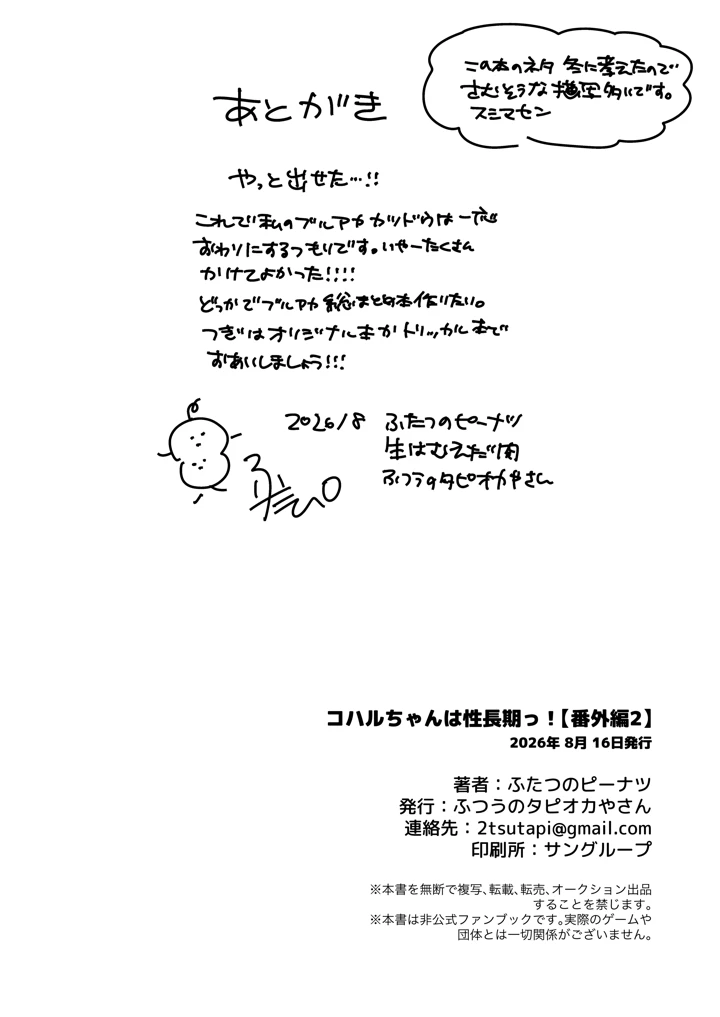 この本のネタ 冬に考えたので
さむそうな描写多いです。
スミマセン
あとがき
やっと出せた…!!
これで私のブルアカカツドウは一旦
おわりにするつもりです。いやーたくさん
かけてよかった!!!!
どっかでブルアカ総まとめ本作りたい。
つぎはオリジナル本かトリッカル本で
おあいしましょう!!!
2026/8 ふたつのピーナツ
生はむえだ肉
ふつうのタピオカやさん
コハルちゃんは性長期っ！【番外編2】
2026年 8月 16日発行
著者：ふたつのピーナツ
発行：ふつうのタピオカやさん
連絡先：2tsutapi@gmail.com
印刷所：サングループ
※本書を無断で複写、転載、転売、オークション出品
することを禁じます。
※本書は非公式ファンブックです。実際のゲームや
団体とは一切関係がございません。